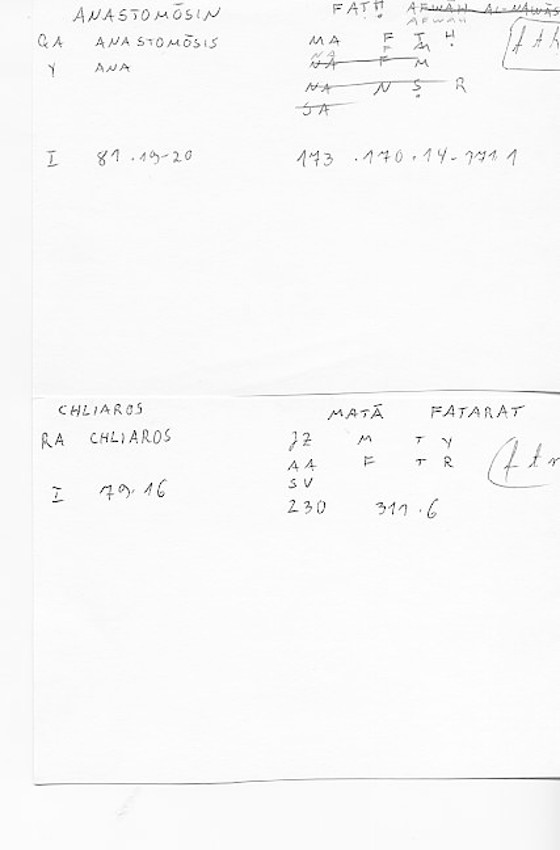 ANASTOMŌSIN FATḤ AFWĀH AL-
AFWĀH
GA ANASTOMŌSIS MA F T Ḥ
Y ANA NA F M
NA N Ṣ R
SA
I 81.19-20 173 .170.14-171 1
CHLIAROS MATĀ FATARAT
RA CHLIAROS JZ M T Y
AA F T R
SV
I 79.16 230 311.6